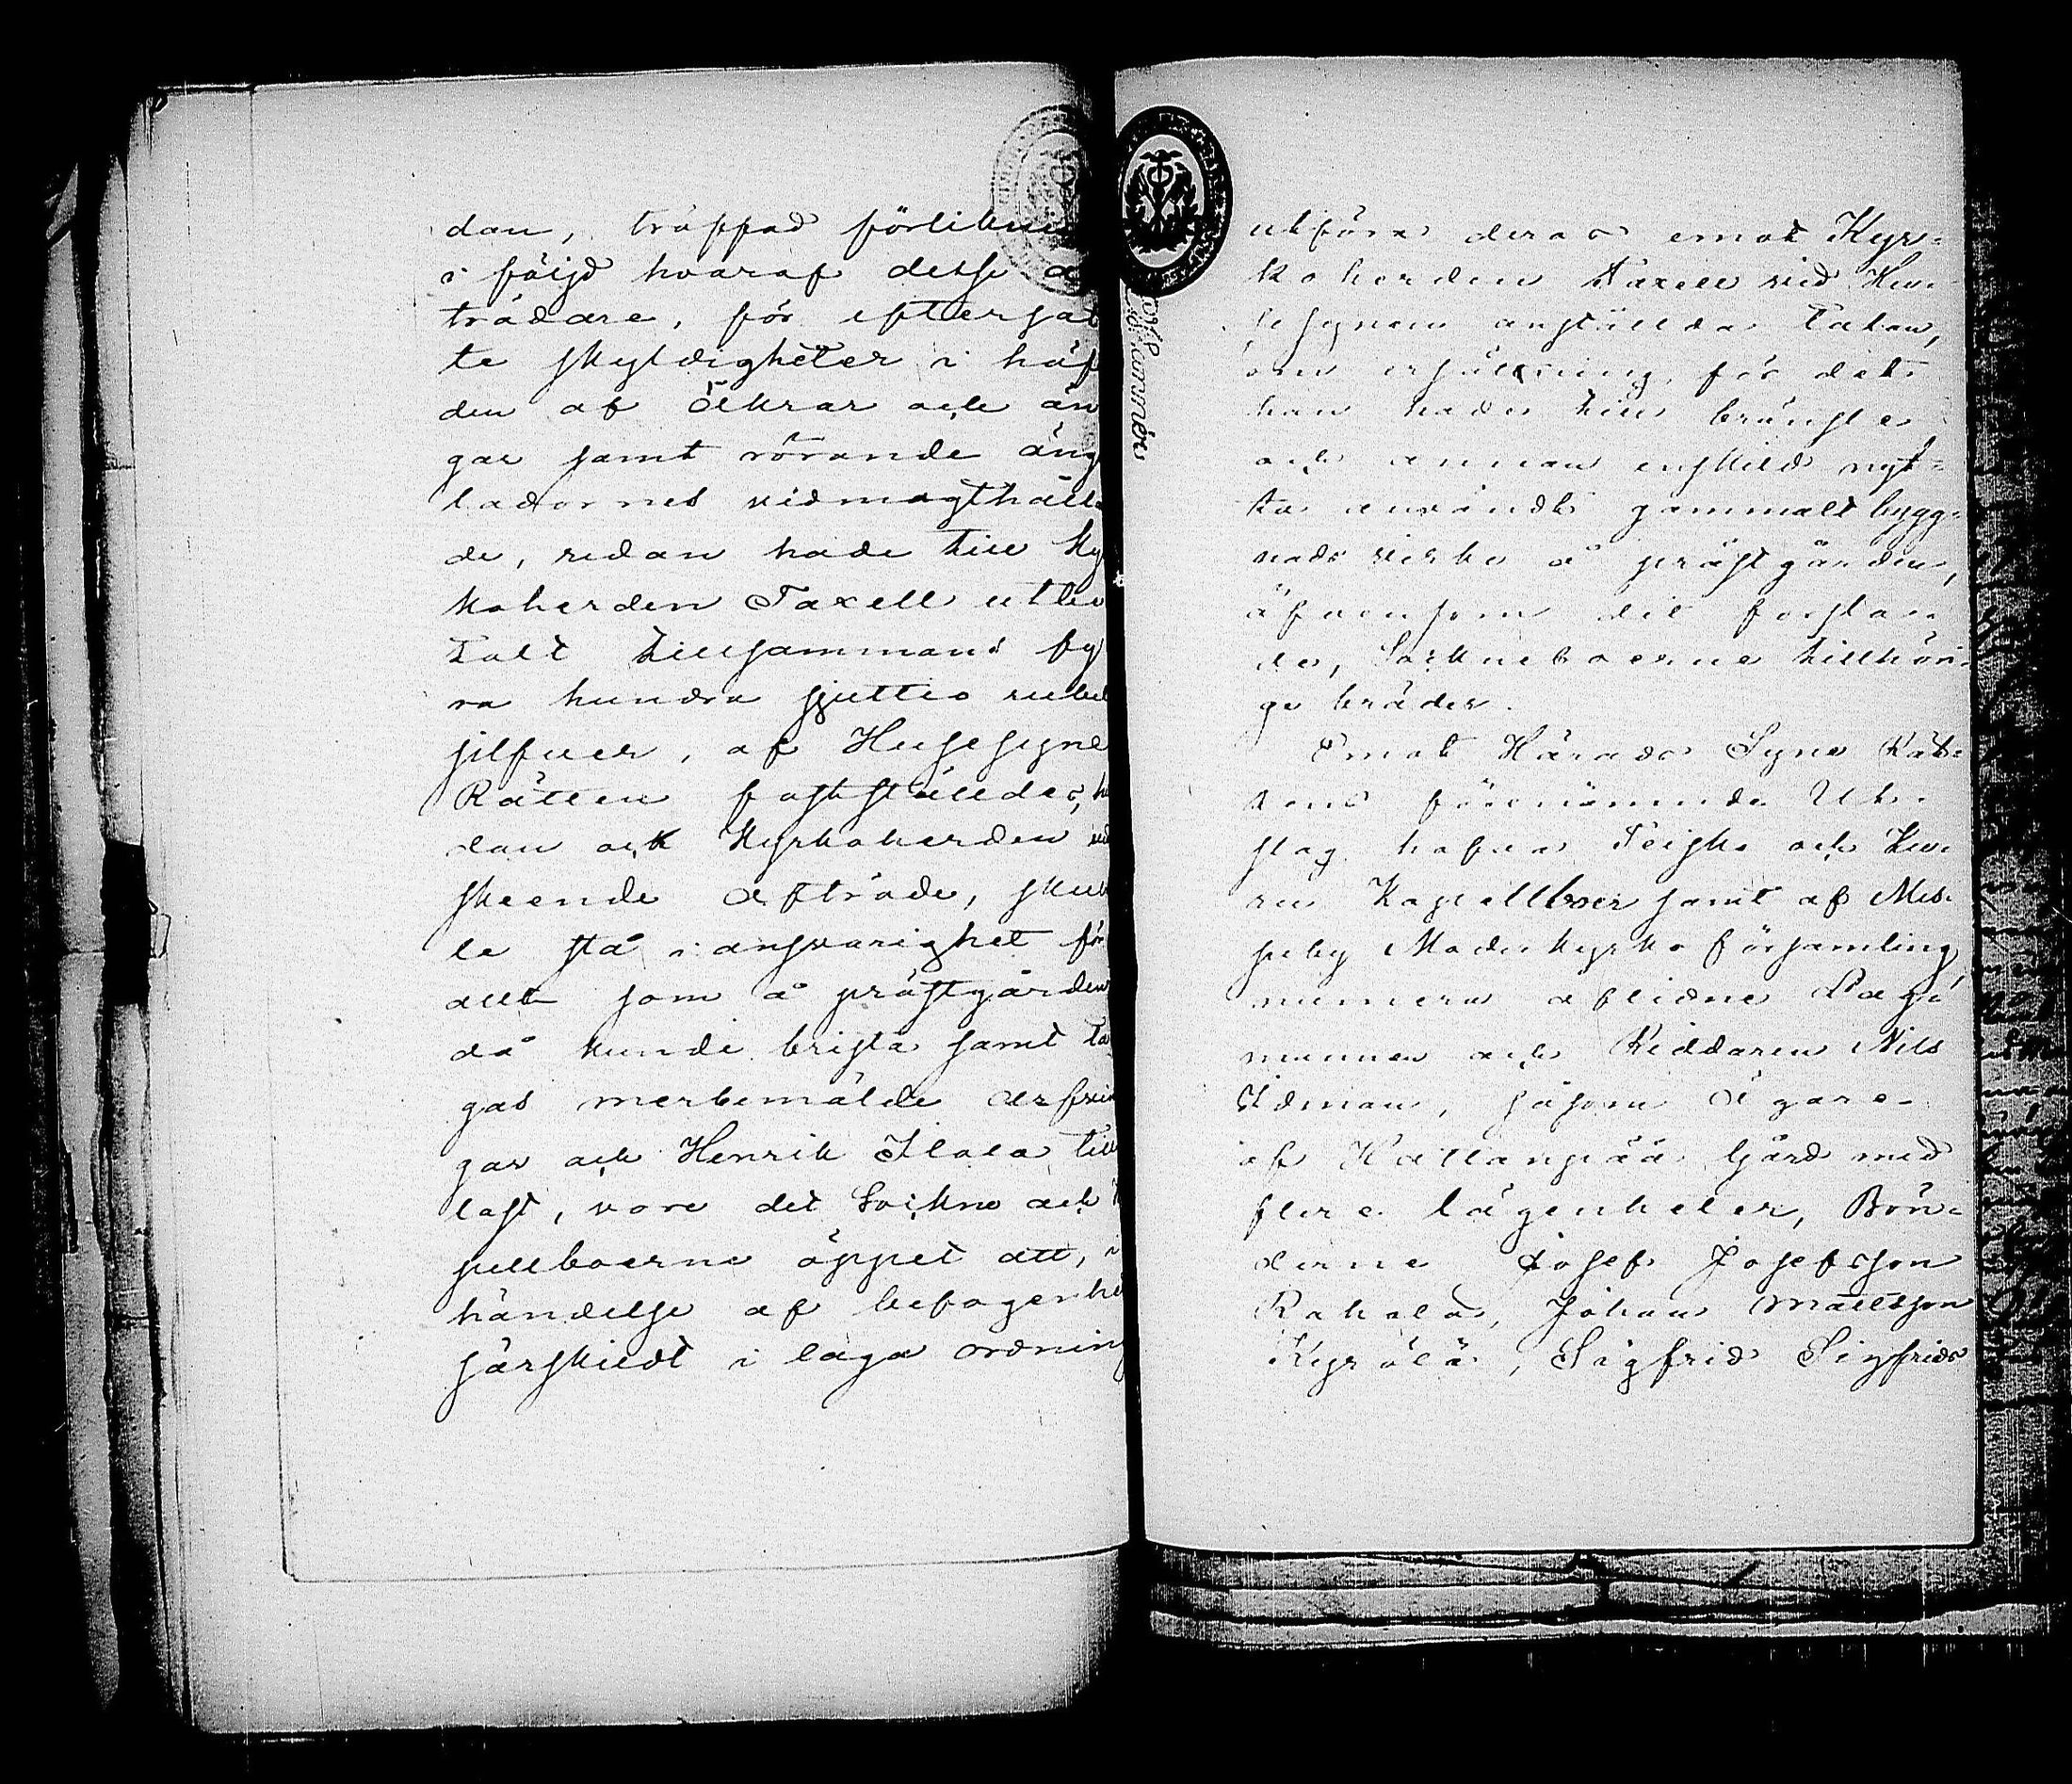 dan, träffad förlikni
i följd hvaraf desse a
trädare, för eftersat
te skyldigheter i häf
den af åkrar och än
gar samt rörande äng
ladornes vidmagthåll
de, redan hade till Ky
koherden Taxell utbe
talt tillsammans fy
ra hundra sjuttio rubel
silfver, af Husesyns
Rätten fastställdes,
dan och Kyrkoherden vid
skeende afträde, skul
le stå i ansvarighet för
allt som å prästgården
då kunde brista samt ta
gas merbemälde arfvin
gar och Henrik Ilola till
last, vore det Sockne och
pellboerne öppet att, i
händelse af befogenhe
särskildt i laga ordning
utföra deras emot Kyr=
koherden Taxell vid Hu
sesynen anställda talan,
om ersättning för det
han hade till bränsle
och annan enskild nyt=
ta användt gammalt bygg=
nads virke å prästgården,
äfvensom dit forsla
de, Sockneboerne tillhöri
ga bräder.
Emot Härads Syne Rät=
tens förenämnde Ut
slag hafva Teisko och Ku
ru Kapellboer samt af Mes
suby Moderkyrko församling,
numera aflidne Lag
mannen och Riddaren Nils
Idman, såsom ägare
af Hatanpää Gård med
flere lägenheter, Bön=
derne Josef Josefsson
Rahola, Johan Mattsson
Kyrölä, Sigfrid Sigfrids